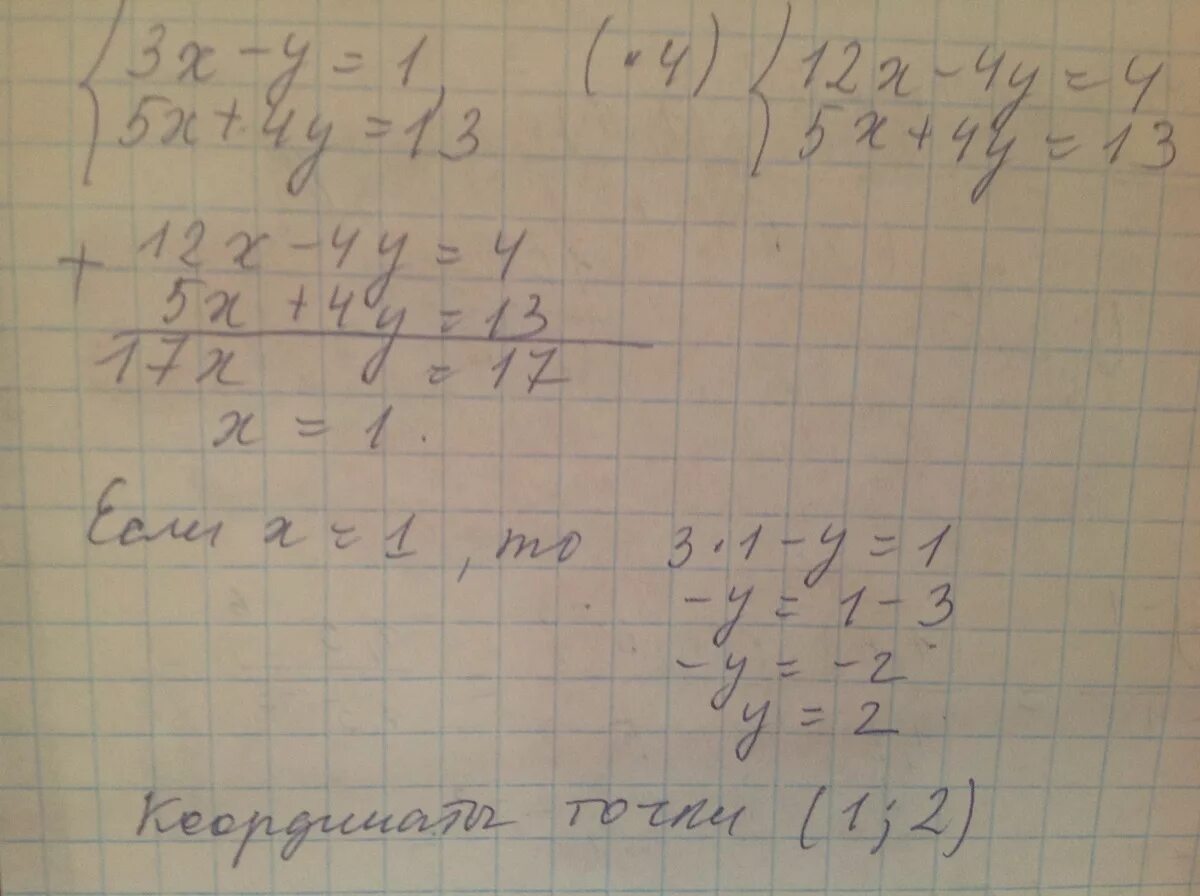 { 3x - y = 1, (· 4) { 12x - 4y = 4
5x + 4y = 13 5x + 4y = 13
+ 12x - 4y = 4
5x + 4y = 13
17x y = 17
x = 1.
Если x = 1, то 3 · 1 - y = 1
-y = 1 - 3
-y = -2
y = 2
Координаты точки (1; 2)